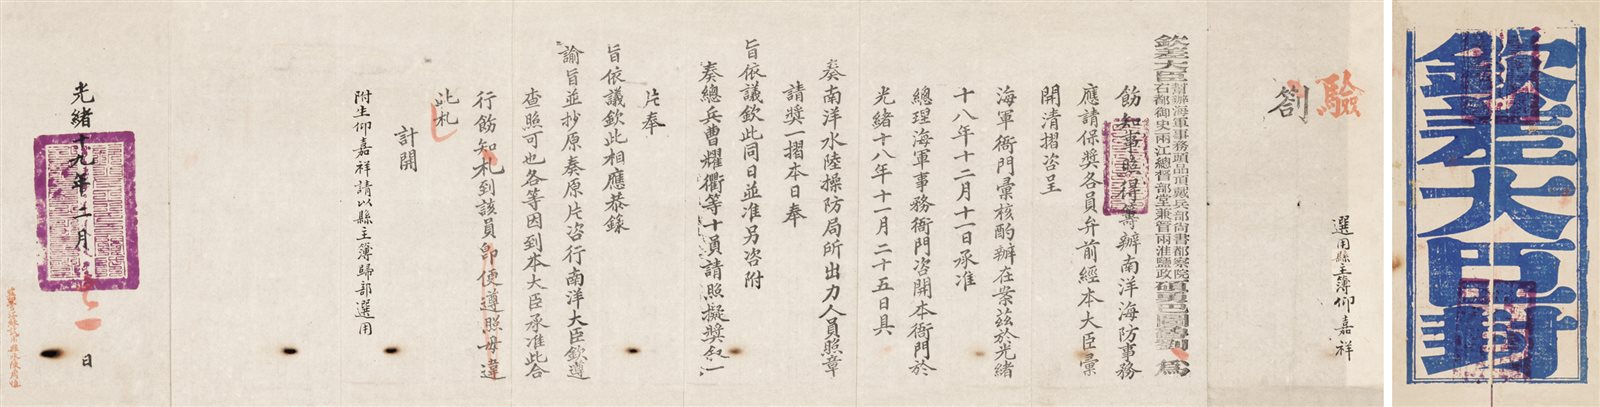 驗
劄
選用縣主簿仰嘉祥
欽差大臣幫辦海軍事務頭品頂戴兵部尚書都察院右都御史兩江總督部堂兼管兩淮鹽政碩勇巴圖魯劉 為
飭知事照得籌辦南洋海防事務
應請保獎各員弁前經本大臣彙
開清摺咨呈
海軍衙門彙核酌辦在案茲於光緒
十八年十二月十一日承准
總理海軍事務衙門咨開本衙門於
光緒十八年十一月二十五日具
奏南洋水陸操防局所出力人員照章
請獎一摺本日奉
旨依議欽此同日並准另咨附
奏總兵曹耀衢等十員請照擬獎敘一
片奉
旨依議欽此相應恭錄
諭旨並抄原奏原片咨行南洋大臣欽遵
查照可也各等因到本大臣承准此合
行飭知札到該員即便遵照毋違
此札
計開
附生仰嘉祥請以縣主簿歸部選用
光緒十九年二月 日
欽差大臣封